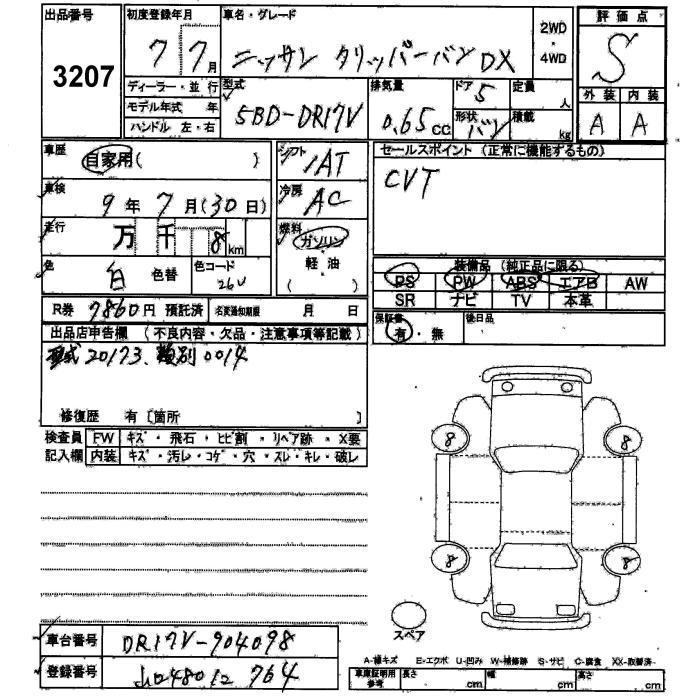 出品番号
3207
初度登録年月
7 7月
車名・グレード
ニッサン クリッパーバン DX
2WD
・
4WD
評価点
S
外装 内装
A A
ディーラー・並行
モデル年式 年
ハンドル 左・右
型式
5BD-DR17V
排気量
0.65cc
ドア 5
形状 バン
定員 人
積載 kg
車歴
自家用( )
シフト
IAT
セールスポイント (正常に機能するもの)
CVT
車検
9年7月(30日)
冷房
AC
走行
万 千 8km
燃料
ガソリン
軽・油
( )
色
白 色替
色コード
26U
装備品 (純正品に限る)
PS PW ABS エアB AW
SR ナビ TV 本革
R券 7860円 預託済 名変通知期限 月 日
保証書
有・無
後日品
出品店申告欄 (不良内容・欠品・注意事項等記載)
型式 20173. 類別 0014
修復歴 有〔箇所 〕
検査員 FW キズ・飛石・ヒビ割・リペア跡・X要
記入欄 内装 キズ・汚レ・コゲ・穴・スレ・キレ・破レ
8 8
8 8
スペア
車台番号 DR17V-904098
登録番号
A-線キズ E-エクボ U-凹み W-補修跡 S-サビ C-腐食 XX-取替済
車庫証明用
参考
長さ cm 幅 cm 高さ cm